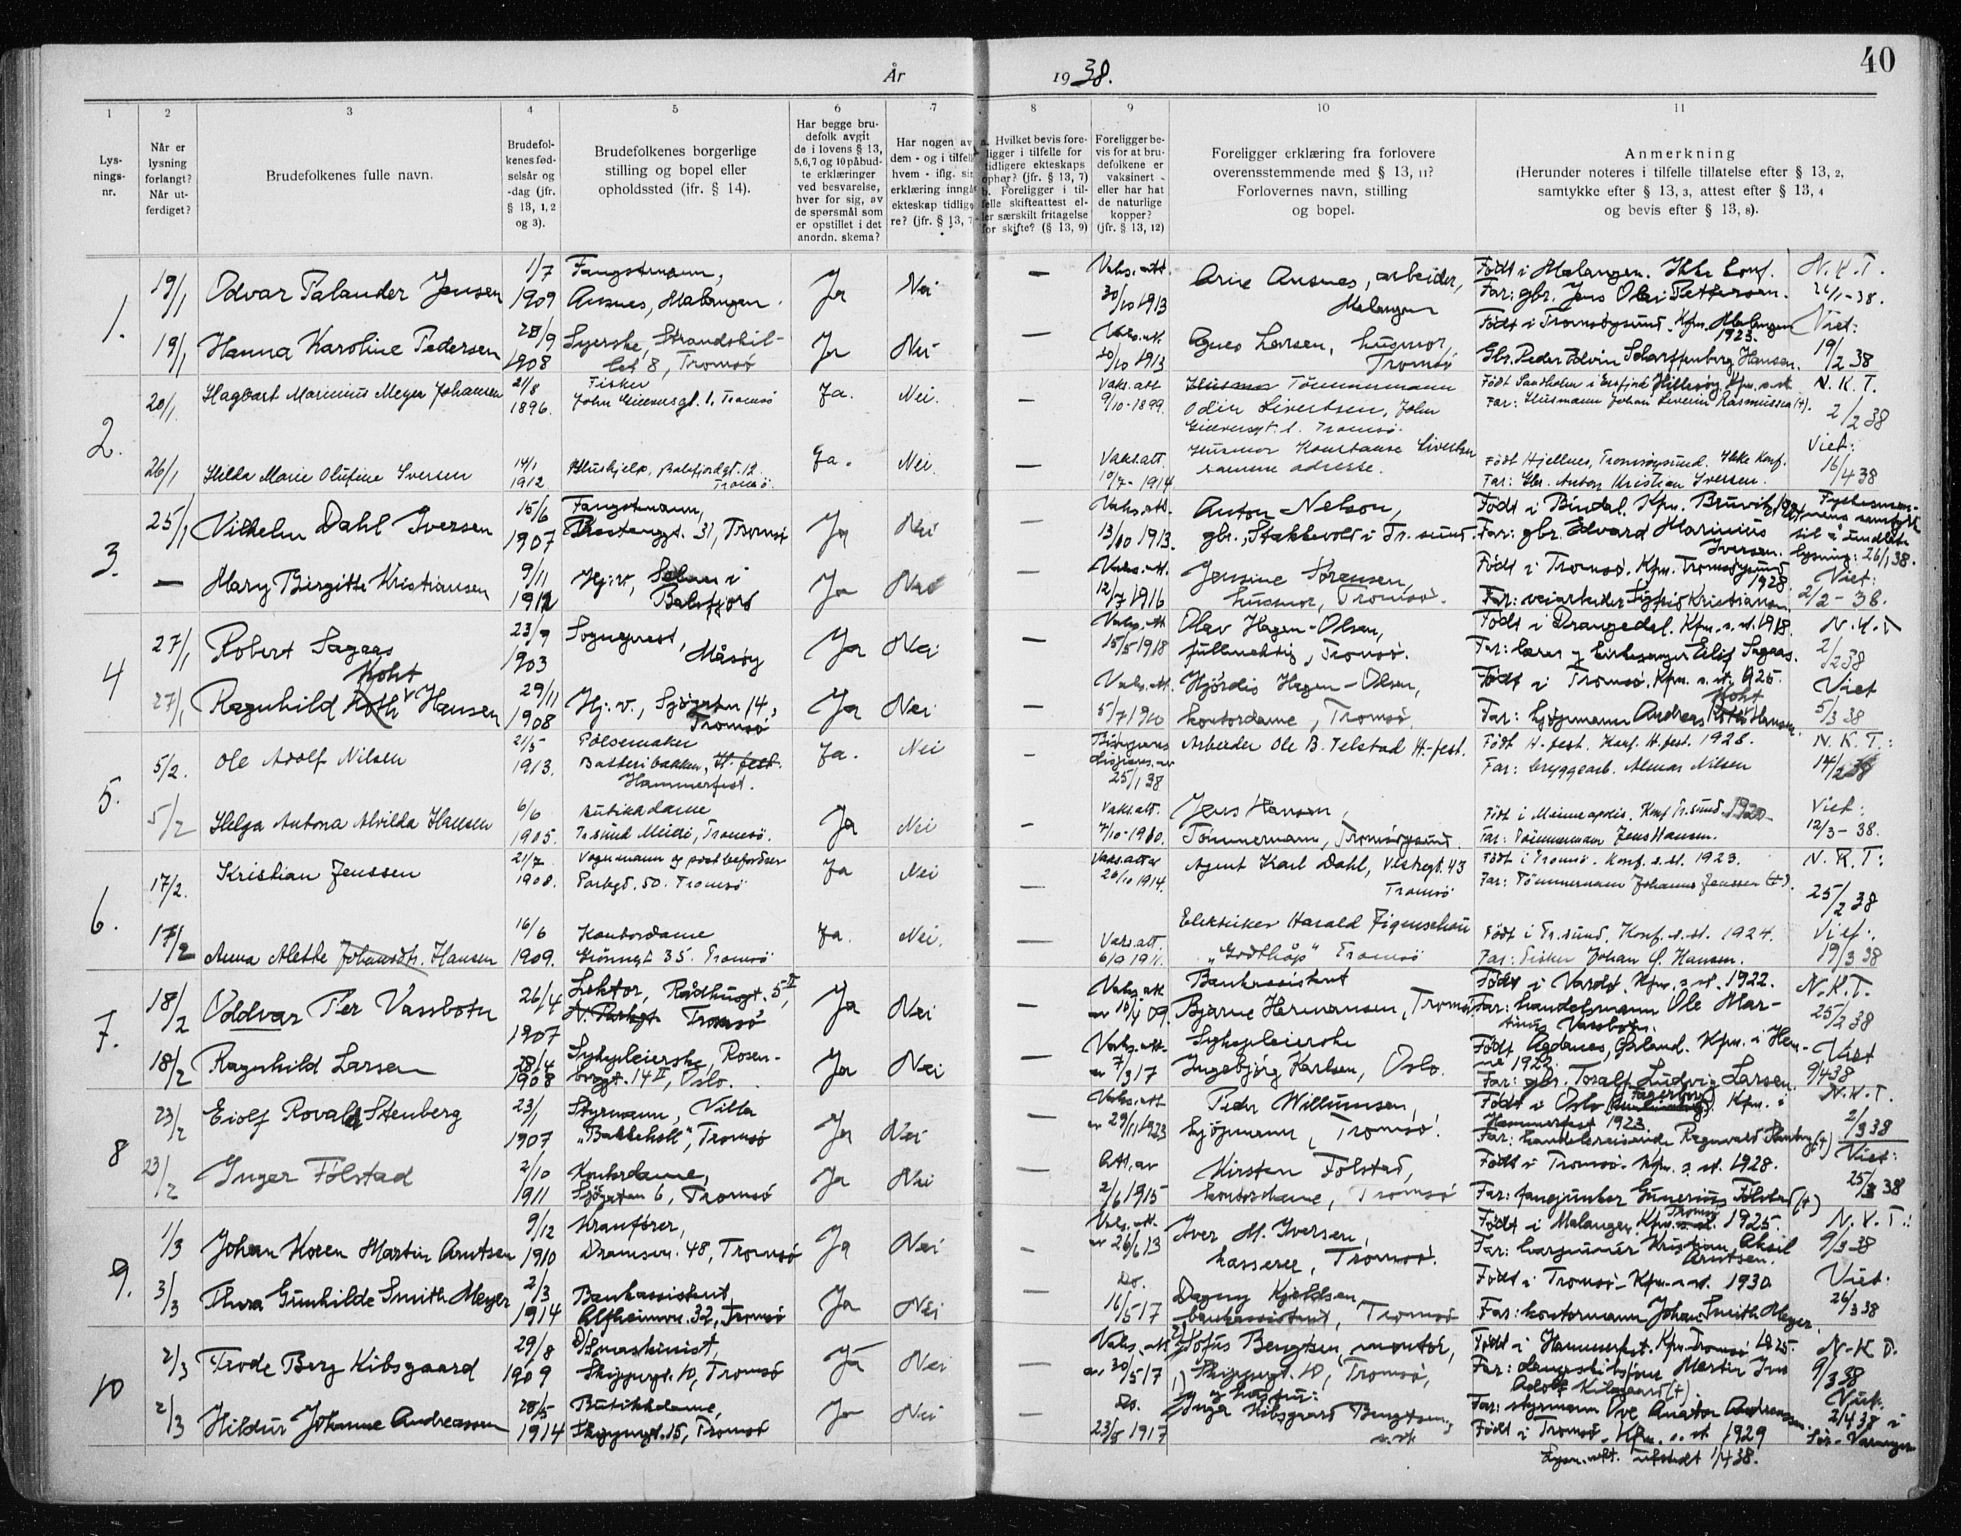 År 1938.
40
1 2 3 4 5 6 7 8 9 10 11
Lys-
nings-
nr.
Når er
lysning
forlangt?
Når ut-
ferdiget?
Brudefolkenes fulle navn.
Brudefol-
kenes fød-
selsår og
-dag (jfr.
§ 13, 1, 2
og 3).
Brudefolkenes borgerlige
stilling og bopel eller
opholdssted (ifr. § 14).
Har begge bru-
defolk avgit
de i lovens § 13,
5,6,7 og 10 påbud-
te erklæringer
ved besvarelse,
hver for sig, av
de spørsmål som
er opstillet i det
anordn. skema?
Har nogen av
dem - og i tilfelle
hvem - iflg. sin
erklæring inngåt
ekteskap tidlige-
re? (jfr. § 13, 7
a. Hvilket bevis fore-
ligger i tilfelle for
tidligere ekteskaps
ophør? (jfr. § 13, 7)
b. Foreligger i til-
felle skifteattest el-
ler særskilt fritagelse
for skifte? (§ 13, 9)
Foreligger be-
vis for at bru-
defolkene er
vaksinert -
eller har hat
de naturlige
kopper?
(jfr. § 13, 12)
Foreligger erklæring fra forlovere
overensstemmende med § 13, 11?
Forlovernes navn, stilling
og bopel.
Anmerkning
(Herunder noteres i tilfelle tillatelse efter § 13, 2,
samtykke efter § 13, 3, attest efter § 13, 4
og bevis efter § 13, 8).
1. 19/1 Odvar Palander Jensen 1/7 1909 Fangstmann, Ansnes, Malangen. Ja Nei — Vaks.att. 30/10 1913 Arne Ansnes, arbeider, Malangen Født i Malangen. Ikke konf. Far: gbr. Jens Olai Pettersen. N.K.T. 26/1-38.
19/1 Hanna Karoline Pedersen 28/9 1908 Syerske, Strandskil-let 8, Tromsø Ja Nei — Vaks.att. 20/10 1913 Agnes Larsen, husmor, Tromsø Født i Tromsøysund. Kfm. Malangen 1923. Gbr. Peder Edvin Scharffenberg Hansen. Viet: 19/2 38
2. 20/1 Hagbart Marinius Meyer Johansen 21/8 1896. Fisker John Giæversgt. 1, Tromsø Ja. Nei. — Vaks.att 9/10-1899. Tömmermann Odin Sivertsen, John Giæversgt. 1. Tromsø. Født Sandholm i Hillesøy, Kfm. s. st. Far: Husmann Johan Severin Rasmussen (+). N.K.T. 2/2 38
26/1 Hilda Marie Olufine Iversen 14/1 1912 Hushjelp, Balsfjordgt. 12. Tromsø. Ja. Nei. — Vaks.att. 10/7-1914 Husmor Konstanse Sivertsen samme adresse. Født Hjellnes, Tromsøysund. Ikke Konf. Far: Gbr. Anton Kristian Iversen. Viet: 16/4 38
3. 25/1 Vilhelm Dahl Iversen 15/6 1907 Fangstmann, 31, Tromsø Ja Nei — Vaks.att. 13/10 1913. Anton Nelson, gbr., Stakkevold i Tr.sund. Født i Bindal. Kfm. Far: gbr. Edvard Marinius Iversen. lysning: 26/1 38.
— Mary Birgitte Kristiansen 9/11 1912 Hj.v., i Balsfjord Ja Nei — Vaks.att. 12/7 1916 Jensine Sørensen, husmor, Tromsø. Født i Tromsø. Kfm. Tromsøysund 1928. Far: veiarbeider Sigfrid Kristiansen Viet: 2/2-38.
4 27/1 Robert Sagaas 23/9 1903 Sogneprest, Måsøy Ja Nei — Vaks.att 15/5 1918 Olav Hagen-Olsen, fullmektig, Tromsø. Født i Drangedal. Kfm. s. st. 1918. Far: lærer og kirkesanger Sagaas. N.K.T 2/2 38
27/1 Ragnhild Koht Hansen 29/11 1908 Hj.v., Sjøgaten 14, Tromsø Ja Nei — Vaks.att. 5/7 1920 Hjördis Hagen-Olsen, kontordame, Tromsø Født i Tromsø. Kfm. s. st. 1925. Far: sjøgmann Andreas Koht Hansen. Viet 5/3 38
5. 5/2. Ole Adolf Nilsen 21/5 1913. Pølsemaker Batteribakken, H.fest. Hammerfest. Ja. Nei — 25/1 38 Arbeider Ole B. Telstad H.-fest. Født H.fest. Konf. H.fest. 1928. Far: bryggearb. Nilsen N.K.T.: 14/2 38
5/2 Helga Antona Alvilda Hansen 6/6 1905. Butikkdame Tr.sund Meieri, Tromsø. Ja Nei — Vaks.att. 7/10-1910. Jens Hansen, Tömmermann, Tromsøysund. Født i Minneapolis. Konf Tr.sund 1920. Far: Tömmermann Jens Hansen. Viet: 12/3-38.
6. 17/2. Kristian Jenssen 21/7 1908. Vognmann og postbefordrer Parkgt. 50. Tromsø Ja Nei — Vaks.att av 26/10 1914. Agent Karl Dahl, Vestregt. 43 Tromsø Født i Tromsø. Konf. s. st. 1923. Far: Tömmermann Johannes Jenssen (+). N.K.T: 25/2 38
17/2 Anna Alette Johansdtr. Hansen 16/6 1909. Kontordame Grönnegt 35. Tromsø Ja. Nei. — Vaks.att. Elektriker Harald Figenschau „Godthåp" Tromsø Født i Tr.sund. Konf. s. st. 1924. Far: Fisker Johan Hansen. Viet: 19/3 38
7. 18/2 Oddvar Per Vassbotn 26/4 1907 Lektor, Rådhusgt. 5 II, Tromsø Ja Nei — Vaks.att av 10/4 09. Bankassistent Bjarne Hermansen, Tromsø Født i Vardø. Kfm. s. st. 1922. Far: handelsmann Ole Martinus Vassbotn. N.K.T. 25/2 38
18/2 Ragnhild Larsen 28/4 1908 Sykepleierske, Rosenborggt. 14 II, Oslo. Ja Nei — Vaks.att. av 7/3 17 Sykepleierske Ingebjörg Karlsen, Oslo. Født Agdenes, Kfm. i Hemne 1922. Far: gbr. Toralf Ludvig Larsen. Viet 9/4 38
8 23/2 Eiolf Rovald Stenberg 23/1 1907 Styrmann, Villa „Bakkeholt", Tromsø Ja Nei — Vaks.att av 29/11 1923 Peder Willumsen, sjøgmann, Tromsø. Født i Oslo (Fagerborg). Kfm. i Hammerfest 1923. Far: handelsreisende Ragnvald Stenberg (+) N.K.T. 2/3 38
23/2 Inger Fölstad 2/10 1911 Kontordame, Sjøgaten 6, Tromsø Ja Nei — Att. av 2/6 1915 Kirsten Fölstad, kontordame, Tromsø Født i Tromsø. Kfm. s. st. 1928. Far: fanejunker Gunerius Fölstad (+) Viet: 25/3 38
9. 1/3 Johan Koren Martin Arntsen 9/12 1910 Kranfører, Dramsvn. 48, Tromsø Ja Nei — Vaks.att. av 26/6 13 Iver M. Iversen, kasserer, Tromsø. Født i Malangen. Kfm. Tromsø 1925. Far: harpunér Kristian Aksel Arntsen. N.K.T.: 9/3 38
3/3 Thora Gunhilde Smith Meyer 2/3 1914 Bankassistent, Alfheimvn. 32, Tromsø Ja Nei — Do. 16/5 17 Dagny Kjeldsen bankassistent, Tromsø Født i Tromsø. Kfm. s. st. 1930 Far: kontormann Johan Smith Meyer. Viet: 26/3 38
10 2/3 Frode Berg Kibsgaard 29/8 1909 maskinist, Skippergt. 10, Tromsø Ja Nei — Vaks.att av 30/5 17 Sofus Bengtsen, montör, Skippergt. 10, Tromsø, og hustru: Født i Hammerfest. Kfm. Tromsø 1925. Far: Martin Adolf Kibsgaard (+). N.K.T. 9/3 38
2/3 Hildur Johanne Andreassen 28/5 1914 Butikkdame, Skippergt. 15, Tromsø Ja Nei — Do. 23/5 1917 Inga Kibsgaard Bengtsen, s. st. Far: styrmann Ove Anton Andreassen. Født i Tromsø. Kfm. s. st. 1929 Viet. 2/4 38 i Sør-Varanger
Lysn. att. utstedt 1/4 38.